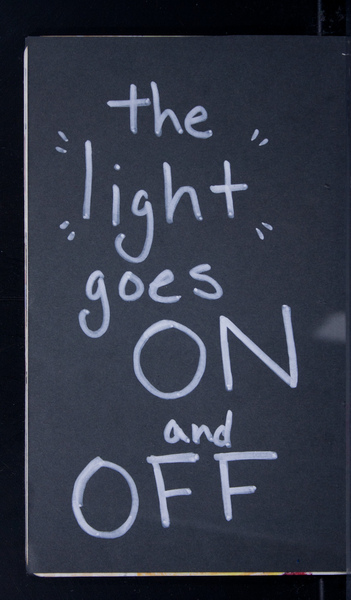 the
light
goes
ON
and
OFF